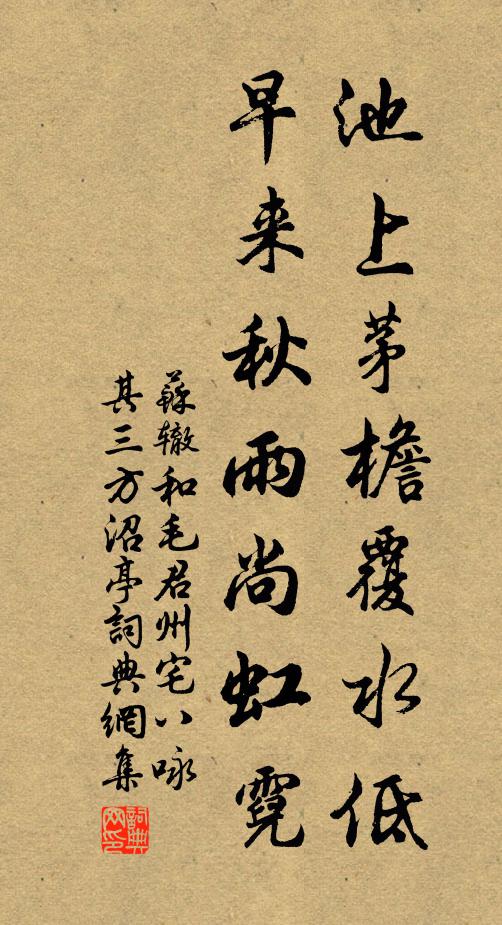 池上茅檐覆水低
早来秋雨尚虹霓
蘇辙和毛君州宅八咏
其三方沼亭詞典網集
詞典网印